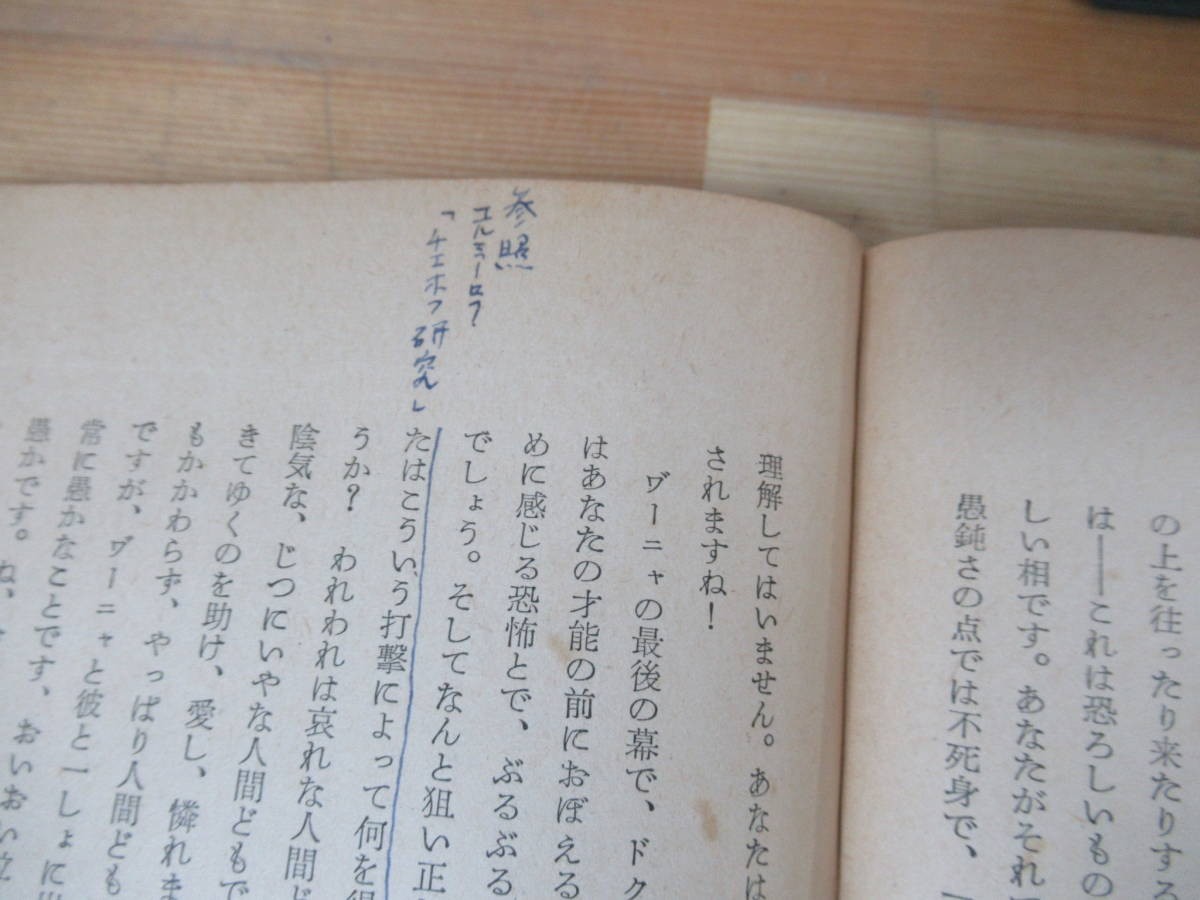 の上を往ったり来たりする
は――これは恐ろしいもの
しい相です。あなたがそれ
愚鈍さの点では不死身で、
参照
エルミーロフ
「チエホフ研究」
理解してはいません。あなたは
されますね！
ヷーニャの最後の幕で、ドク
はあなたの才能の前におぼえる
めに感じる恐怖とで、ぶるぶる
でしょう。そしてなんと狙い正
たはこういう打撃によって何を得
うか？　われわれは哀れな人間ど
陰気な、じつにいやな人間どもで
きてゆくのを助け、愛し、憐れま
もかかわらず、やっぱり人間ども
ですが、ヷーニャと彼と一しょに
常に愚かなことです、おいおい泣
愚かです。ね、